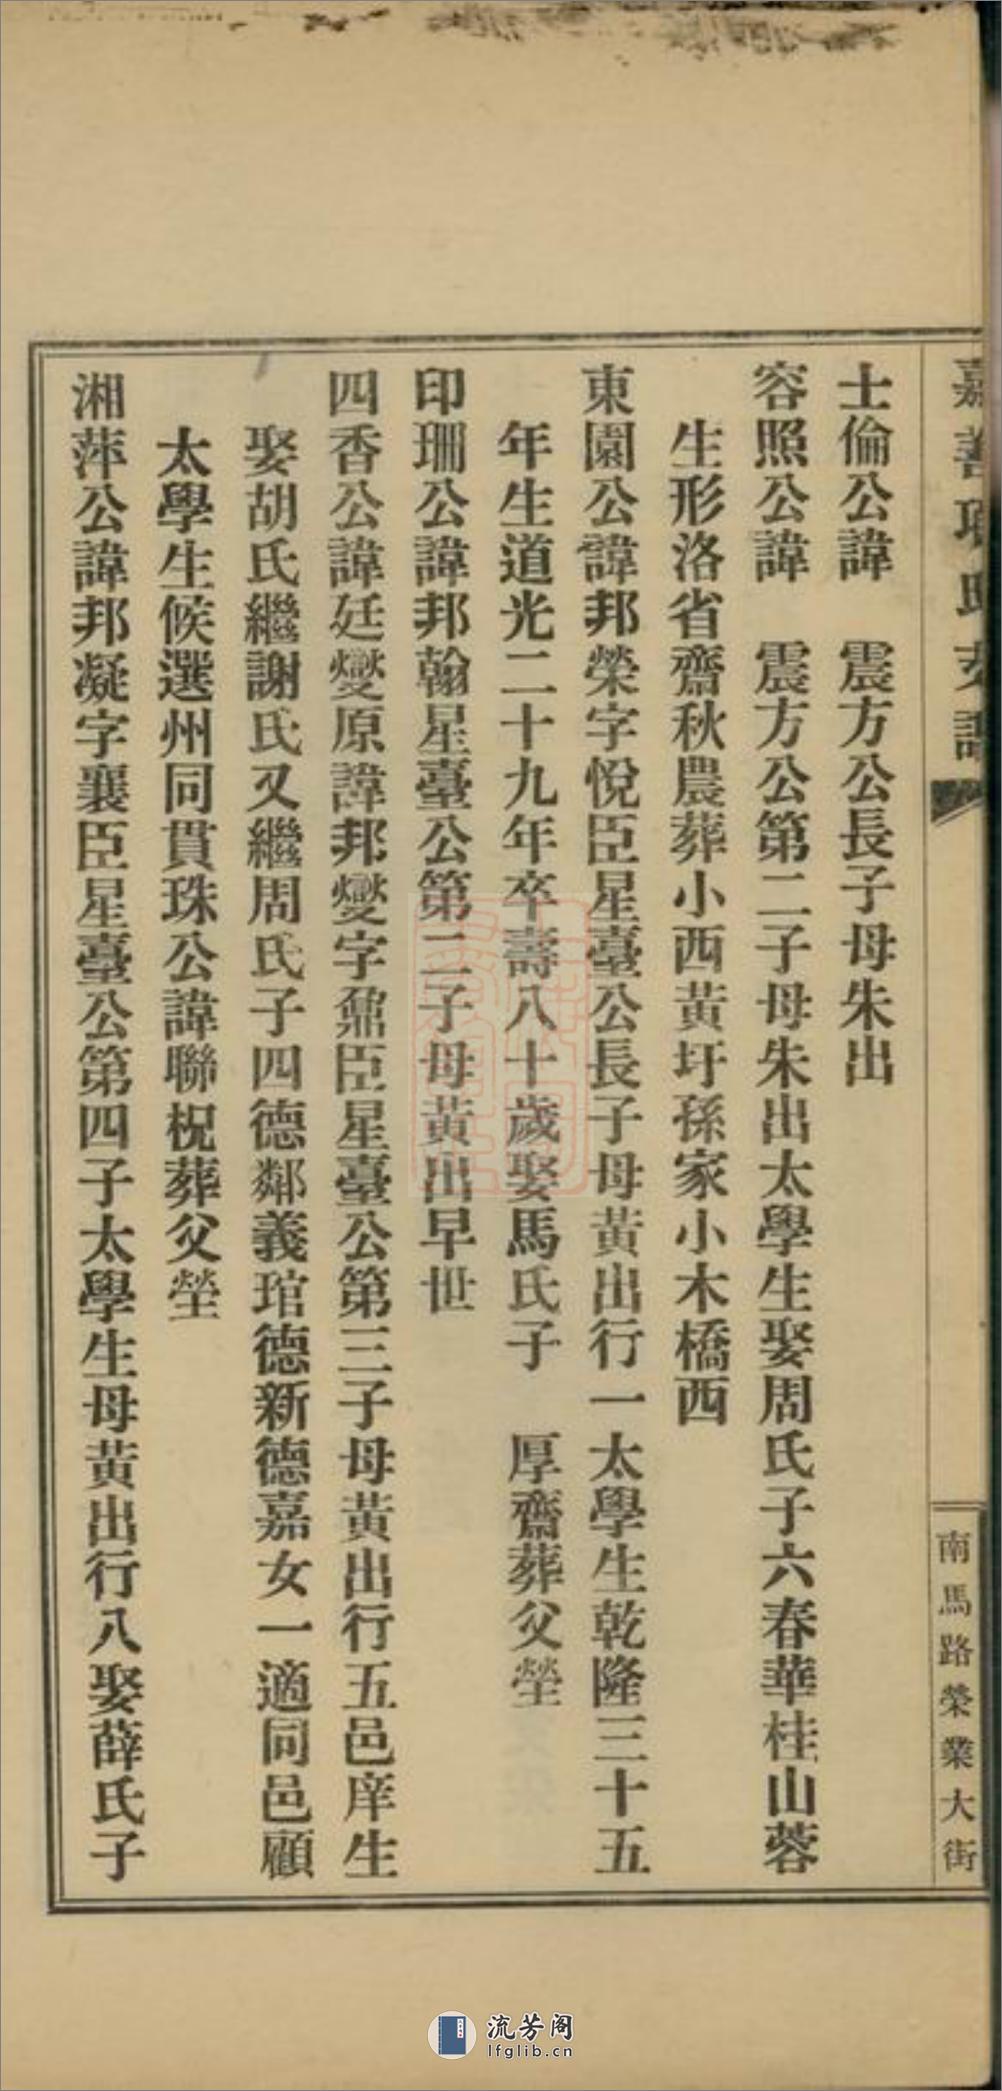 嘉善
士倫公諱　震方公長子母朱出
容照公諱　震方公第二子母朱出太學生娶周氏子六春華桂山蓉
生形洛省齋秋農葬小西黃圩孫家小木橋西
東園公諱邦榮字悅臣星臺公長子母黃出行一太學生乾隆三十五
年生道光二十九年卒壽八十歲娶馬氏子　厚齋葬父塋
印珊公諱邦翰星臺公第二子母黃出早世
四香公諱廷燮原諱邦燮字鼐臣星臺公第三子母黃出行五邑庠生
娶胡氏繼謝氏又繼周氏子四德鄰義琯德新德嘉女一適同邑顧
太學生候選州同貫珠公諱聯柷葬父塋
湘萍公諱邦凝字襄臣星臺公第四子太學生母黃出行八娶薛氏子
南馬路榮業大街
流芳阁
lfglib.cn